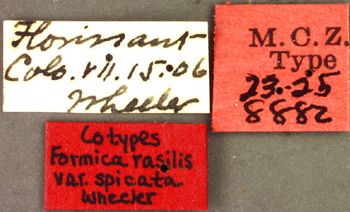 Florissant
Colo. VII.15.06
Wheeler
M.C.Z.
Type
23.-25
8882
Cotypes
Formica rasilis
var. spicata
Wheeler